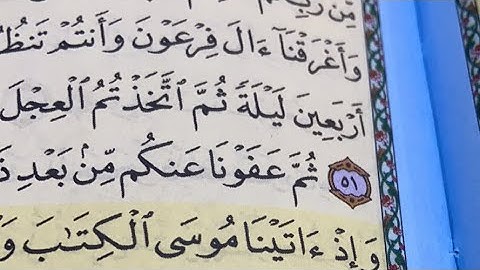 مِّن رَّبِّ
وَأَغْرَقْنَآ ءَالَ فِرْعَوْنَ وَأَنتُمْ تَنظُ
أَرْبَعِينَ لَيْلَةً ثُمَّ ٱتَّخَذْتُمُ ٱلْعِجْلَ
٥١ ثُمَّ عَفَوْنَا عَنكُم مِّنۢ بَعْدِ ذَ
وَإِذْ ءَاتَيْنَا مُوسَى ٱلْكِتَٰبَ وَ